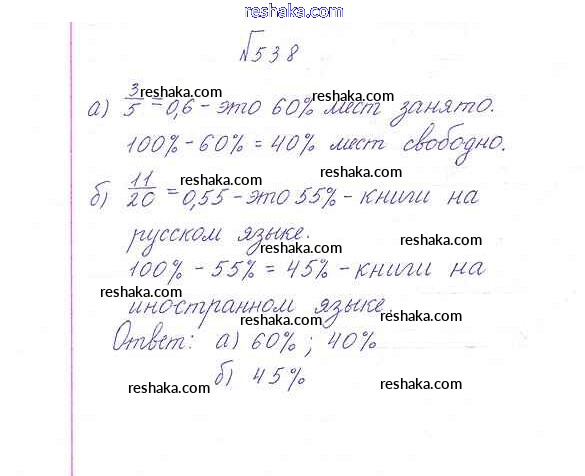 reshaka.com
№538
reshaka.com reshaka.com
а) 3/5 = 0,6 - это 60% мест занято.
reshaka.com
100% - 60% = 40% мест свободно.
reshaka.com reshaka.com
б) 11/20 = 0,55 - это 55% - книги на
русском языке.
reshaka.com reshaka.com
100% - 55% = 45% - книги на
reshaka.com
иностранном языке.
reshaka.com reshaka.com
Ответ: а) 60% ; 40%
б) 45%
reshaka.com reshaka.com